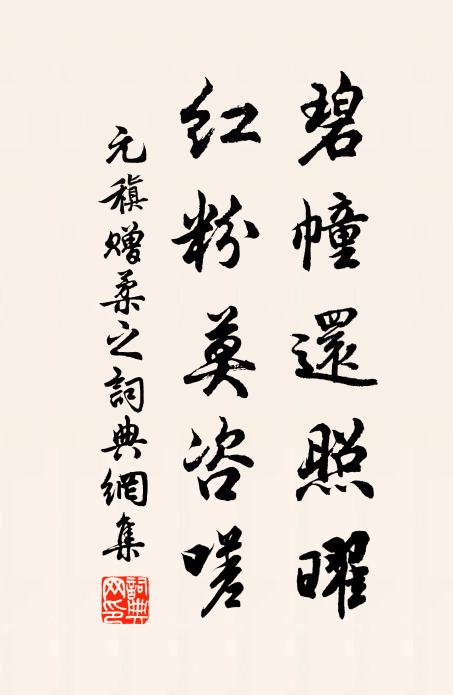 碧幢還照曜
紅粉莫咨嗟
元稹贈柔之詞典網集
詞典網印